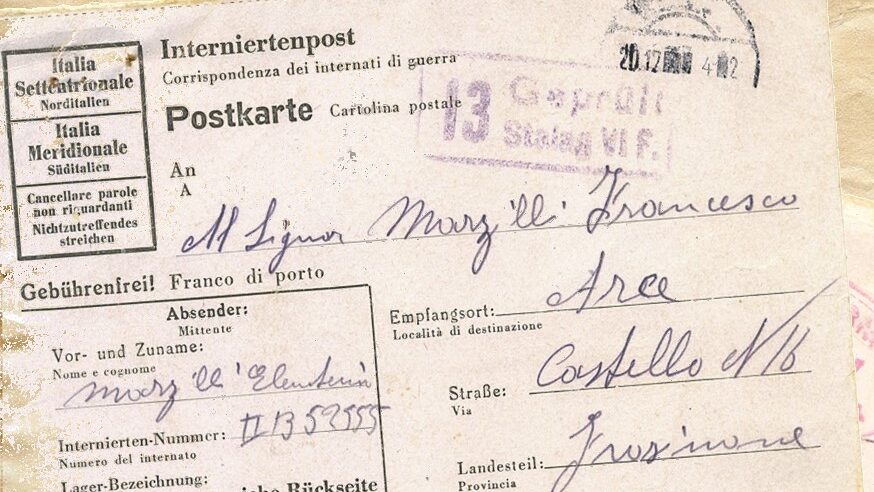 Italia
Settentrionale
Norditalien
Italia
Meridionale
Süditalien
Cancellare parole
non riguardanti
Nichtzutreffendes
streichen
Interniertenpost
Corrispondenza dei internati di guerra
Postkarte Cartolina postale
20.12
13 Geprüft
Stalag VI F.
An
A
Al Signor Marzilli Francesco
Gebührenfrei! Franco di porto
Absender:
Mittente
Vor- und Zuname:
Nome e cognome
Marzilli Eleuterio
Internierten-Nummer: II B 52555
Numero del internato
Lager-Bezeichnung:
Rückseite
Empfangsort: Arce
Località di destinazione
Straße: Castello N 16
Via
Landesteil: Frosinone
Provincia